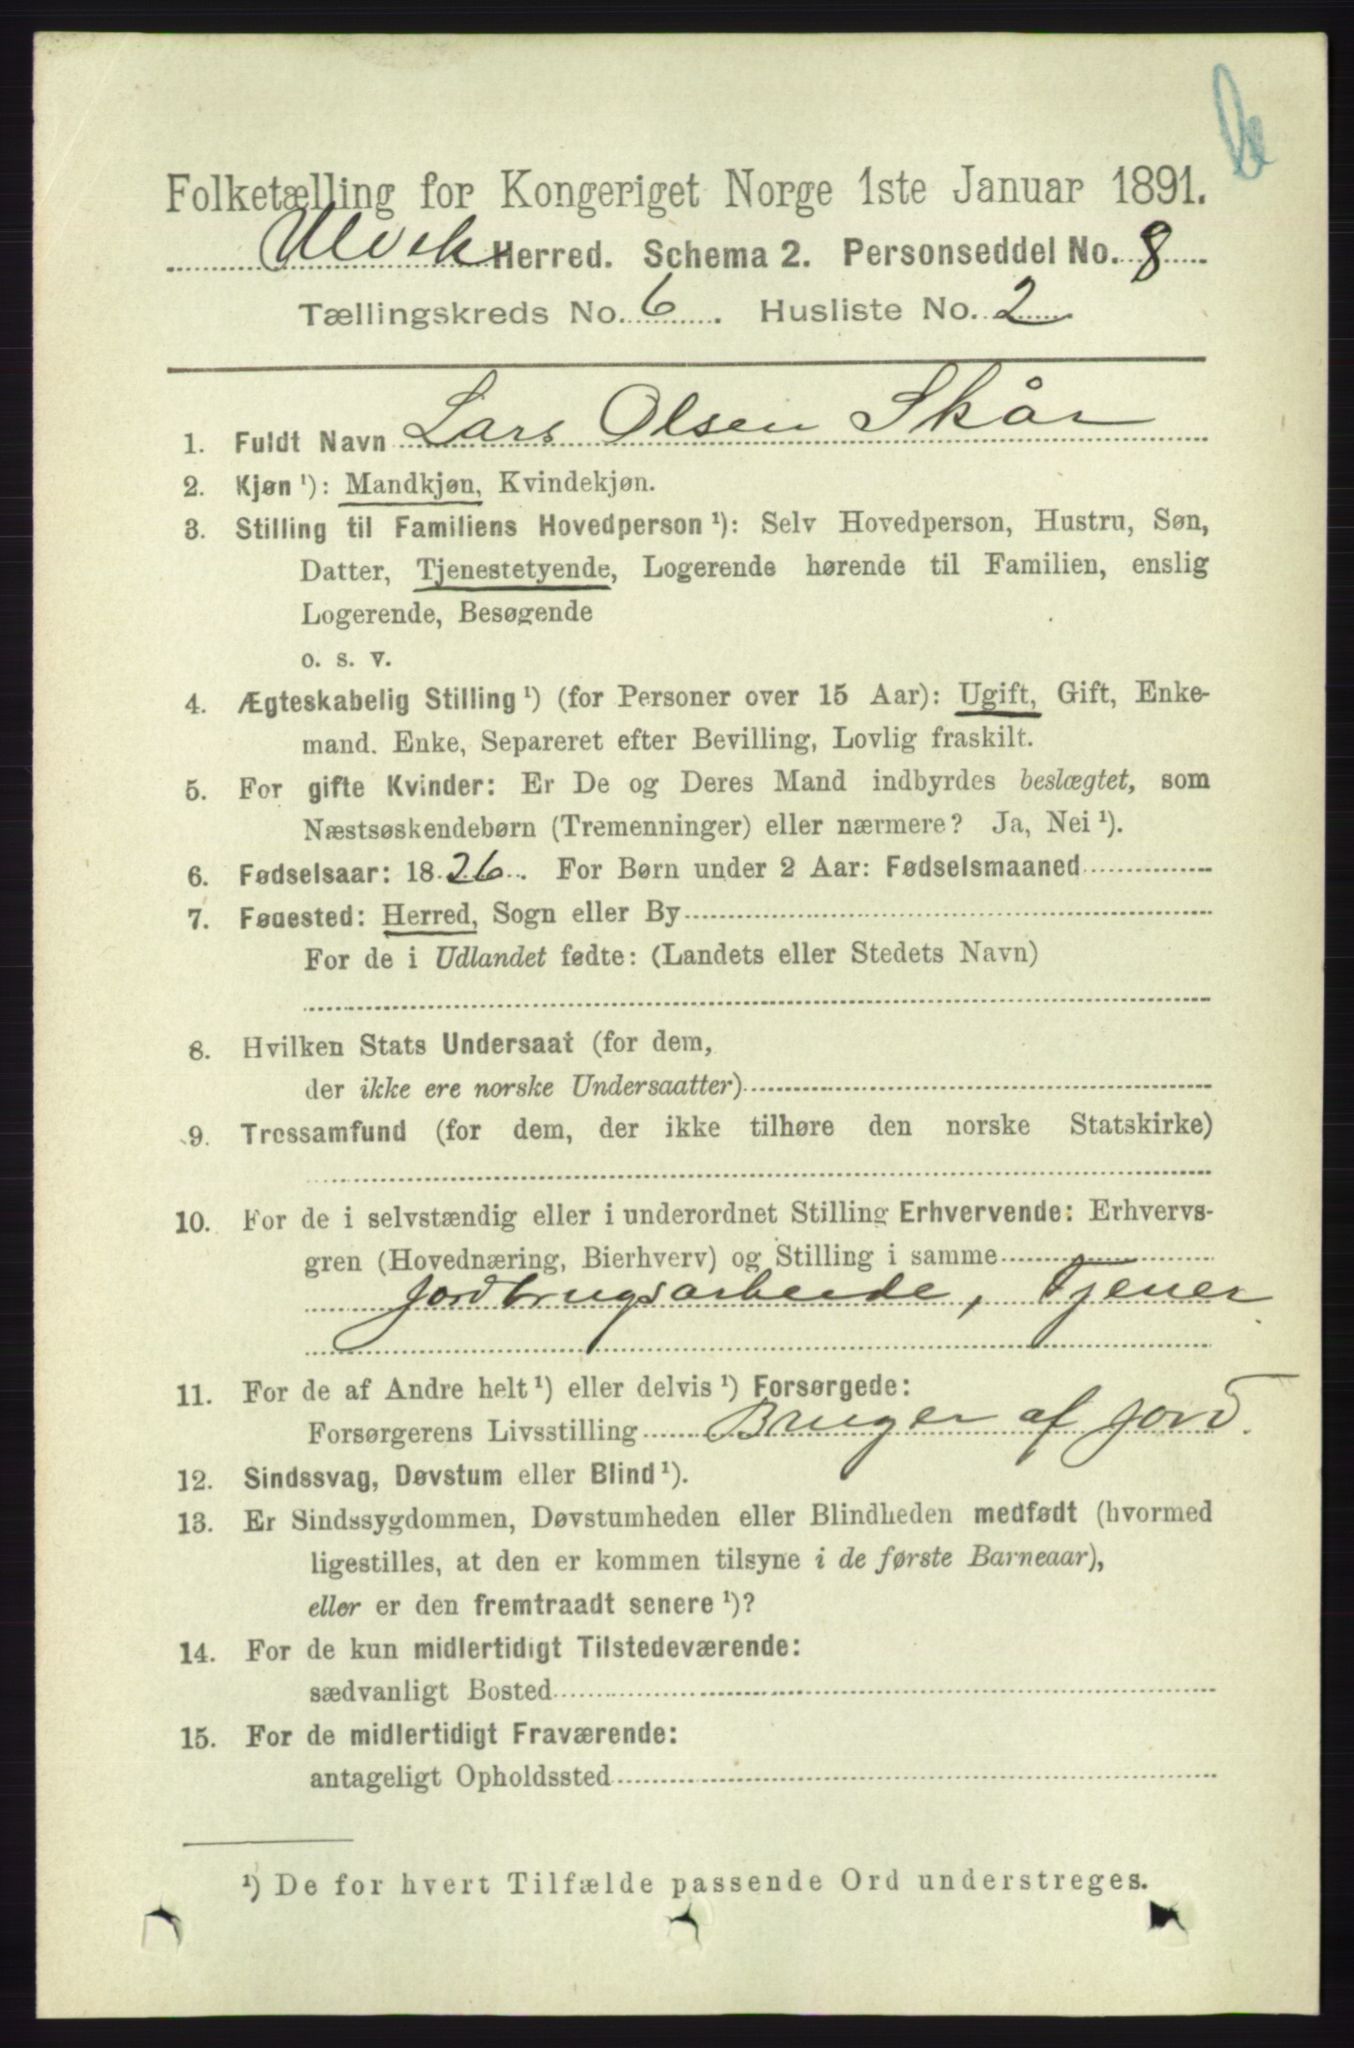 Folketælling for Kongeriget Norge 1ste Januar 1891.
Ulvik Herred. Schema 2. Personseddel No. 8
Tællingskreds No. 6. Husliste No. 2
1. Fuldt Navn Lars Olsen Skår
2. Kjøn ¹): Mandkjøn, Kvindekjøn.
3. Stilling til Familiens Hovedperson ¹): Selv Hovedperson, Hustru, Søn,
Datter, Tjenestetyende, Logerende hørende til Familien, enslig
Logerende, Besøgende
o. s. v.
4. Ægteskabelig Stilling ¹) (for Personer over 15 Aar): Ugift, Gift, Enke-
mand. Enke, Separeret efter Bevilling, Lovlig fraskilt.
5. For gifte Kvinder: Er De og Deres Mand indbyrdes beslægtet, som
Næstsøskendebørn (Tremenninger) eller nærmere? Ja, Nei ¹).
6. Fødselsaar: 1826. For Børn under 2 Aar: Fødselsmaaned
7. Fødested: Herred, Sogn eller By
For de i Udlandet fødte: (Landets eller Stedets Navn)
8. Hvilken Stats Undersaat (for dem,
der ikke ere norske Undersaatter)
9. Trossamfund (for dem, der ikke tilhøre den norske Statskirke)
10. For de i selvstændig eller i underordnet Stilling Erhvervende: Erhvervs-
gren (Hovednæring, Bierhverv) og Stilling i samme
Jordbrugsarbeide, Tjener
11. For de af Andre helt ¹) eller delvis ¹) Forsørgede:
Forsørgerens Livsstilling Bruger af Jord.
12. Sindssvag, Døvstum eller Blind ¹).
13. Er Sindssygdommen, Døvstumheden eller Blindheden medfødt (hvormed
ligestilles, at den er kommen tilsyne i de første Barneaar),
eller er den fremtraadt senere ¹)?
14. For de kun midlertidigt Tilstedeværende:
sædvanligt Bosted
15. For de midlertidigt Fraværende:
antageligt Opholdssted
¹) De for hvert Tilfælde passende Ord understreges.